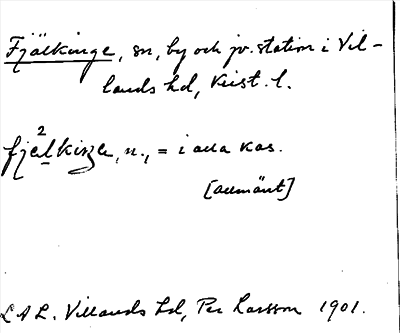 Fjälkinge, sn, by och jv. station i Vil-
lands hd, Krist. l.
fjæ²lkiŋe, n., = i alla kas.
[allmänt]
LAL. Villands hd, Per Larsson 1901.